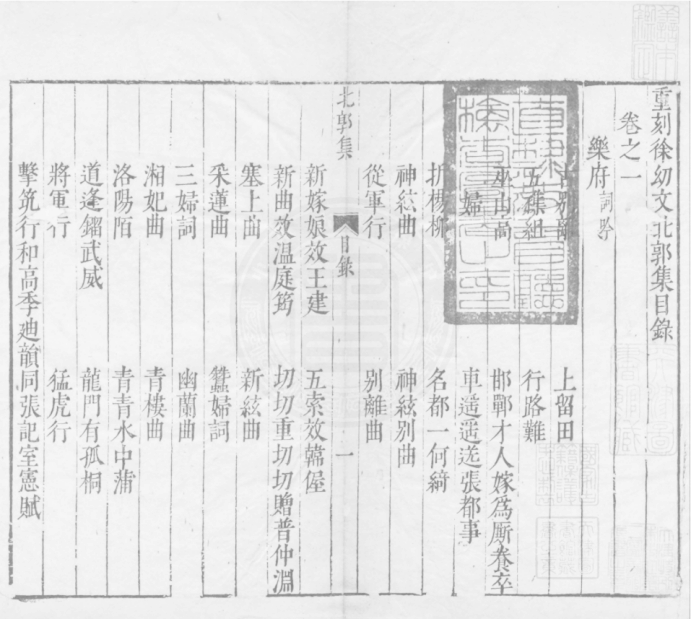 重刻徐幼文北郭集目錄
卷之一
樂府 詞 吟
上留田
五襍組 行路難
巫山高 邯鄲才人嫁爲厮養卒
婦 車遥遥送張都事
折楊柳 名都一何綺
神絃曲 神絃别曲
從軍行 别離曲
北郭集 目錄 一
新嫁娘效王建 五索效韓偓
新曲效温庭筠 切切重切切贈普仲淵
塞上曲 新絃曲
采蓮曲 蠶婦詞
三婦詞 幽蘭曲
湘妃曲 青樓曲
洛陽陌 青青水中蒲
道逢鎦武威 龍門有孤桐
將軍行 猛虎行
擊筑行和高季廸韻同張記室憲賦